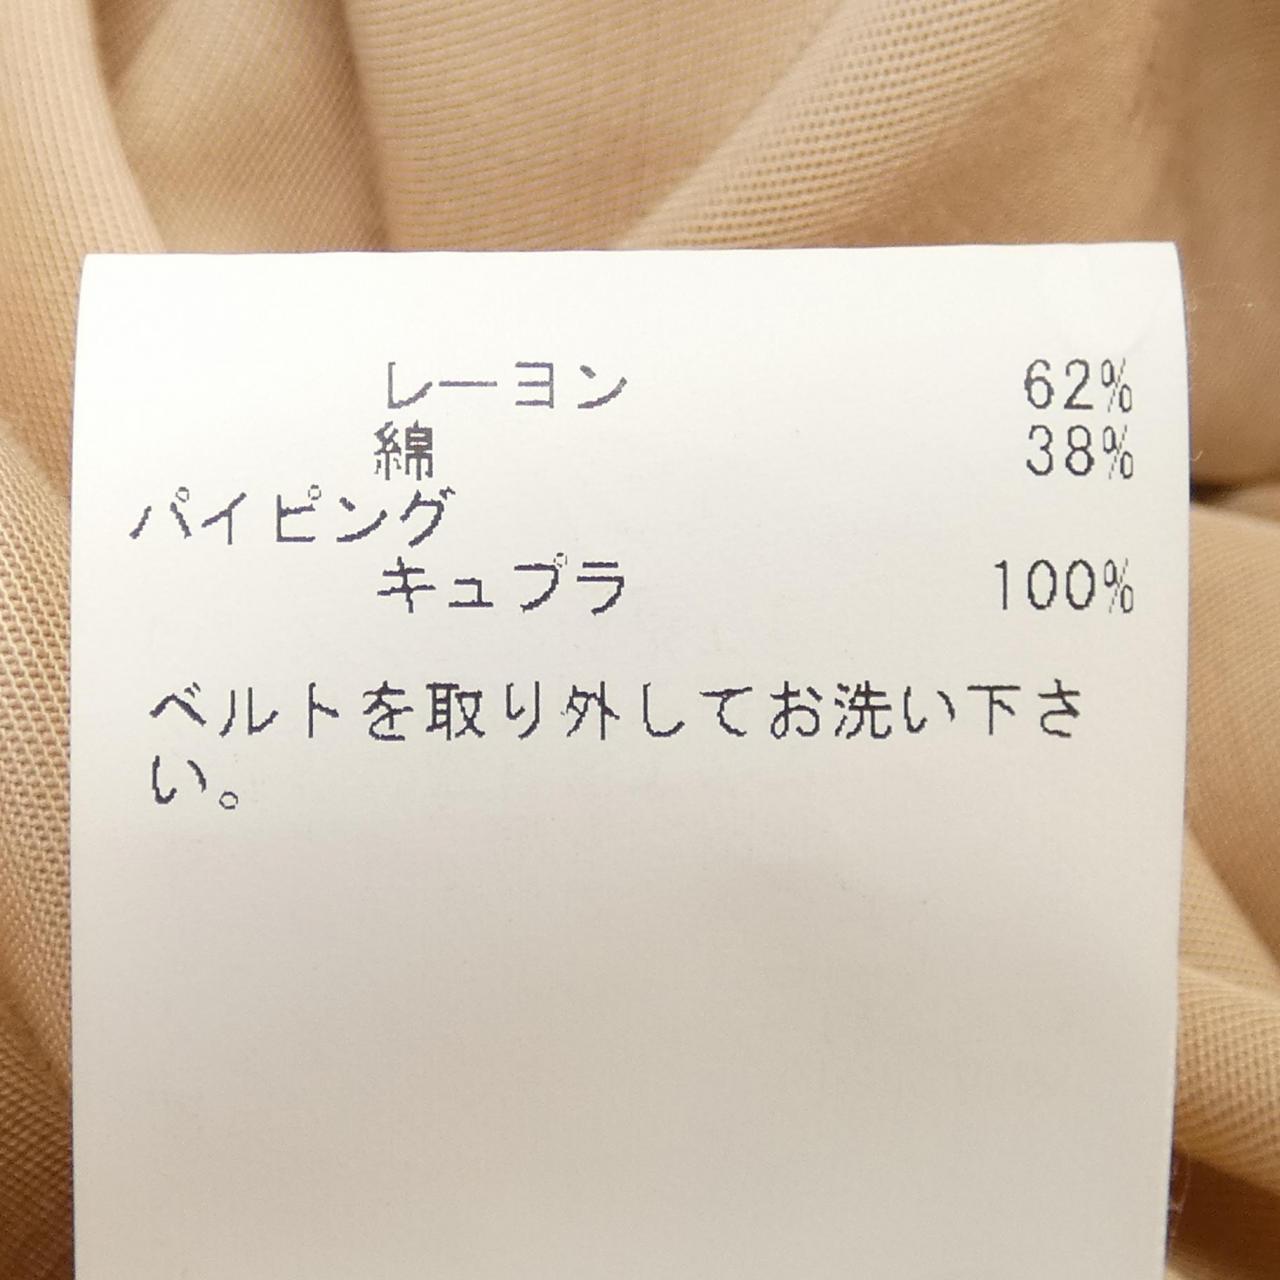 レーヨン 62%
綿 38%
パイピング
キュプラ 100%
ベルトを取り外してお洗い下さ
い。